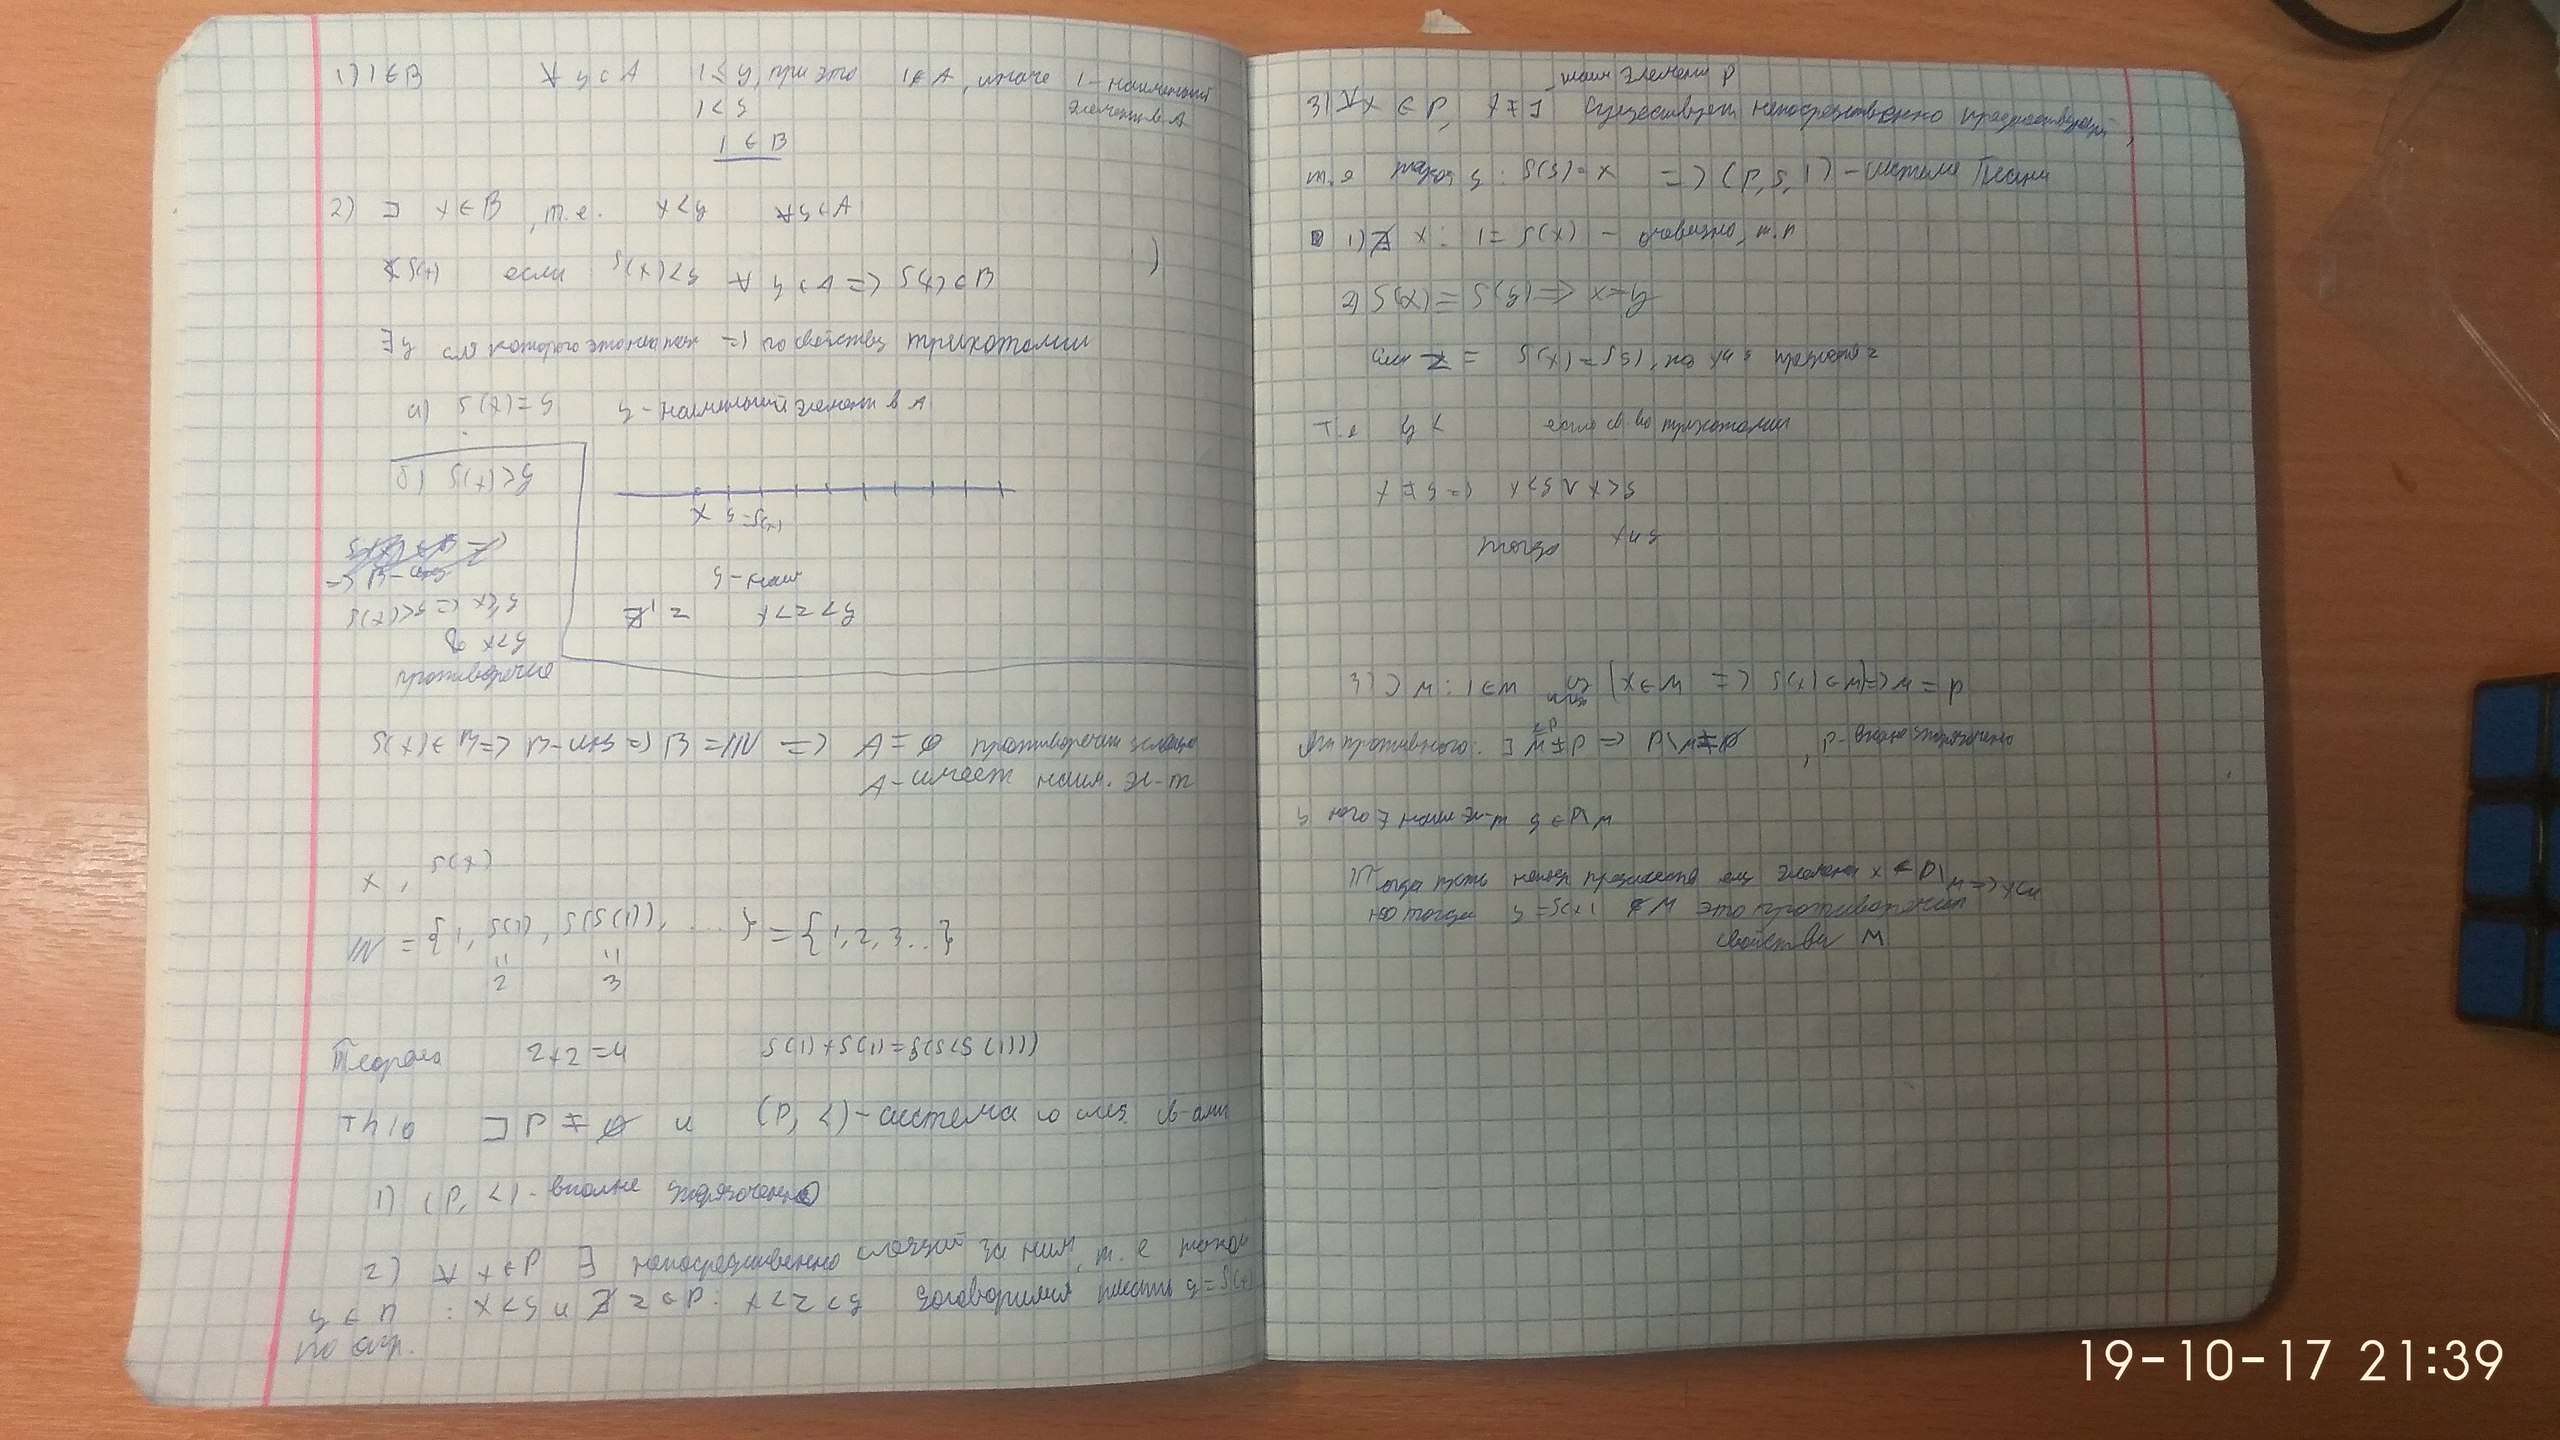 1) 1 ∈ B ∀ y ∈ A 1 ≤ y, при это 1 ∉ A, иначе 1 - наименьший
элемент в A
1 < y
1 ∈ B
2) ∃ x ∈ B, т.е. x < y ∀ y ∈ A
S(x) если S(x) < y ∀ y ∈ A => S(x) ∈ B
∃ y для которого это не так => по свойству трихотомии
а) S(x) = y y - наименьший элемент в A
б) S(x) > y
x y = S(x)
=> B - инд
y - наим
y ≤ x <= y < S(x)
∄ z x < z < y
y > x
противоречие
S(x) ∈ B => B - инд => B = ℕ => A = ∅ противоречит условию
A - имеет наим. эл-т
x, S(x)
ℕ = {1, S(1), S(S(1)), ...} = {1, 2, 3...}
2 3
Теорема 2+2=4 S(1)+S(1)=S(S(S(1)))
Th 10 ∃ P ≠ ∅ и (P, <) - система со след. св-ами
1) (P, <) - вполне упорядочено
2) ∀ x ∈ P ∃ непосредственно следующий за ним, т.е такой
y ∈ P : x < y и ∄ z ∈ P : x < z < y договоримся писать y = S(x)
по опр.
наим элемент P
3) ∀ x ∈ P, x ≠ 1 существует непосредственно предшествующий,
т.е такой y : S(y) = x => (P, S, 1) - система Пеано
1) ∄ x : 1 = S(x) - очевидно, т.п
2) S(x) = S(y) => x = y
z = S(x) = S(y), то x и y
т.е если св. по трихотомии
x ≠ y => x < y ∨ y < x
тогда x и y
3) ∃ M : 1 ∈ M и (x ∈ M => S(x) ∈ M) => M = P
От противного: ∃ M ≠ P => P \ M ≠ ∅, P - вполне упорядочено
у него ∃ наим эл-т y ∈ P \ M
Тогда пусть непоср предшеств ему элемент x ∉ P \ M => x ∈ M
но тогда y = S(x) ∉ M это противоречит
свойству M
19-10-17 21:39